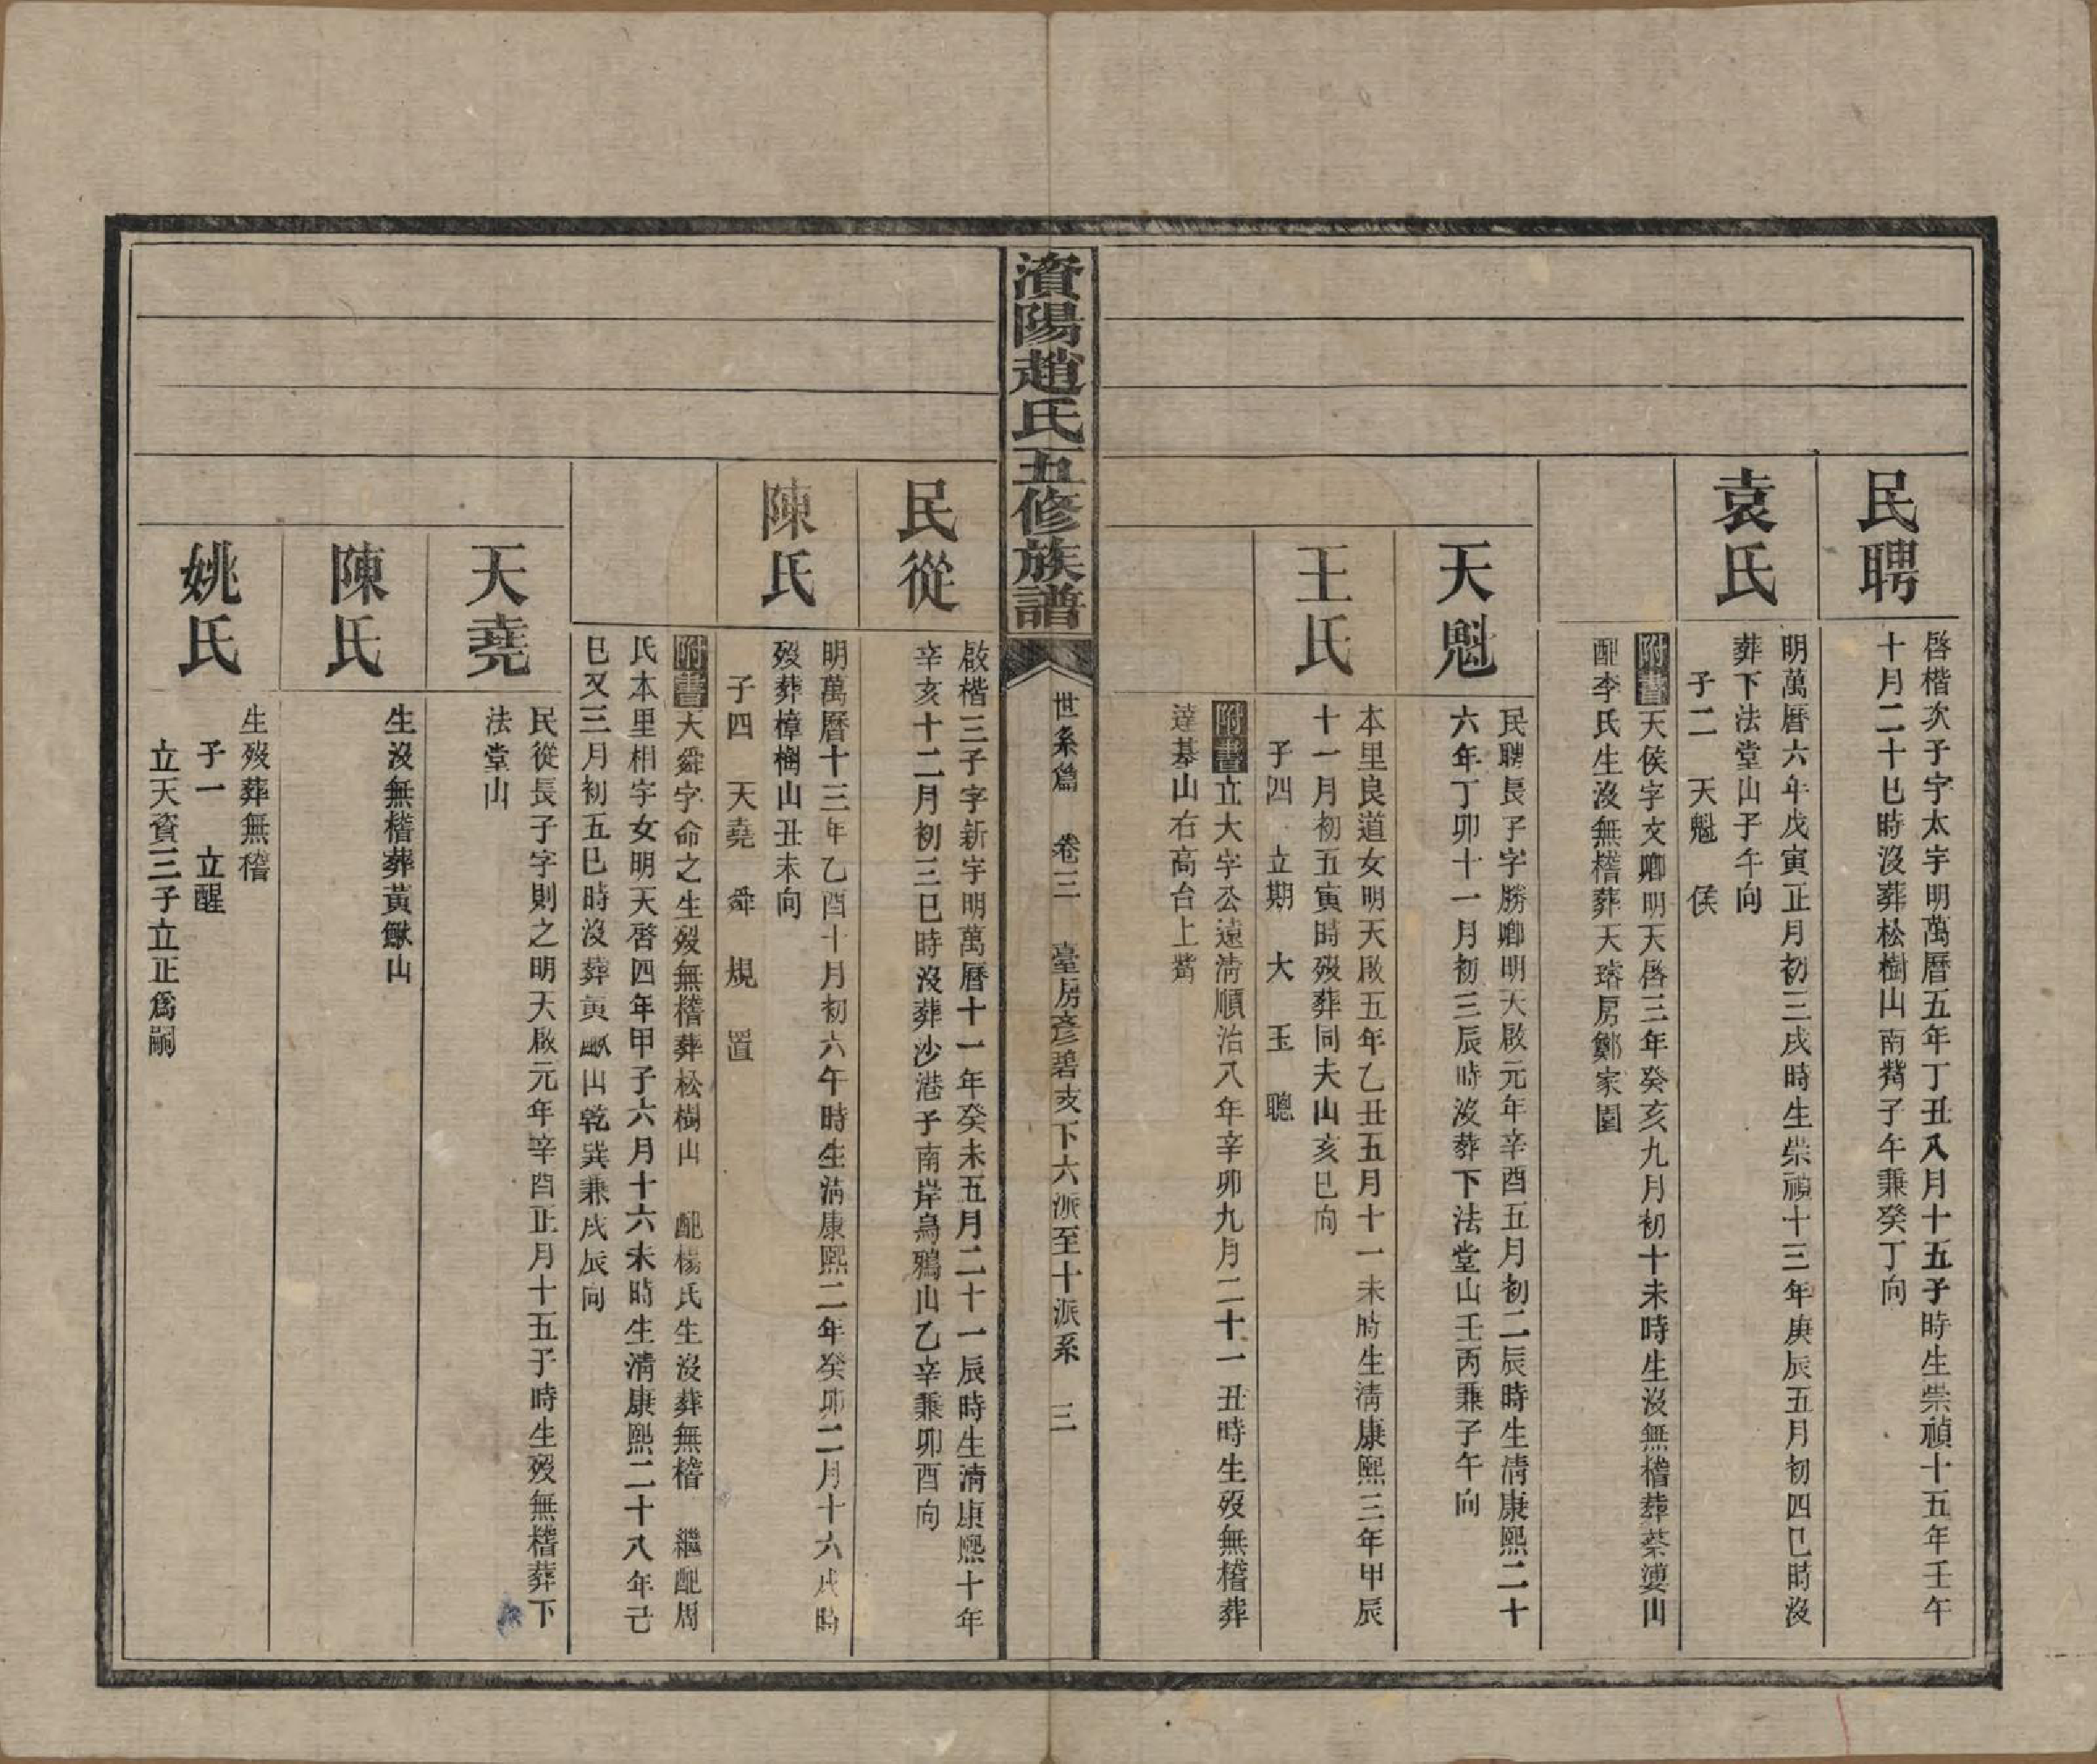 民聘
啓楷次子字太宇明萬曆五年丁丑八月十五子時生崇禎十五年壬午
十月二十巳時沒葬松樹山南觜子午兼癸丁向
袁氏
明萬曆六年戊寅正月初三戌時生崇禎十三年庚辰五月初四巳時沒
葬下法堂山子午向
子二 天魁 侯
附書天侯字文卿明天啓三年癸亥九月初十未時生沒無稽葬蔡婆山
配李氏生沒無稽葬天瑢房鄭家園
天魁
民聘長子字勝卿明天啟元年辛酉五月初二辰時生清康熙二十
六年丁卯十一月初三辰時沒葬下法堂山壬丙兼子午向
王氏
本里良道女明天啟五年乙丑五月十一未時生清康熙三年甲辰
十一月初五寅時歿葬同夫山亥巳向
子四 立期 大 玉 聰
附書立大字公遠清順治八年辛卯九月二十一丑時生歿無稽葬
達墓山右高台上觜
濱陽趙氏五修族譜
世系篇 卷三 臺房彥碧支下六派至十派系 三
民從
啟楷三子字新宇明萬曆十一年癸未五月二十一辰時生清康熙十年
辛亥十二月初三巳時沒葬沙港子南岸烏鴉山乙辛兼卯酉向
陳氏
明萬曆十三年乙酉十月初六午時生清康熙二年癸卯二月十六戌時
歿葬樟樹山丑未向
子四 天堯 舜 規 置
附書天舜字命之生歿無稽葬松樹山 配楊氏生沒葬無稽 繼配周
氏本里相字女明天啓四年甲子六月十六未時生清康熙二十八年己
巳又三月初五巳時沒葬黃㽘山乾巽兼戌辰向
天堯
民從長子字則之明天啟元年辛酉正月十五子時生歿無稽葬下
法堂山
陳氏
生沒無稽葬黃㽘山
姚氏
生歿葬無稽
子一 立醒
立天賚三子立正爲嗣